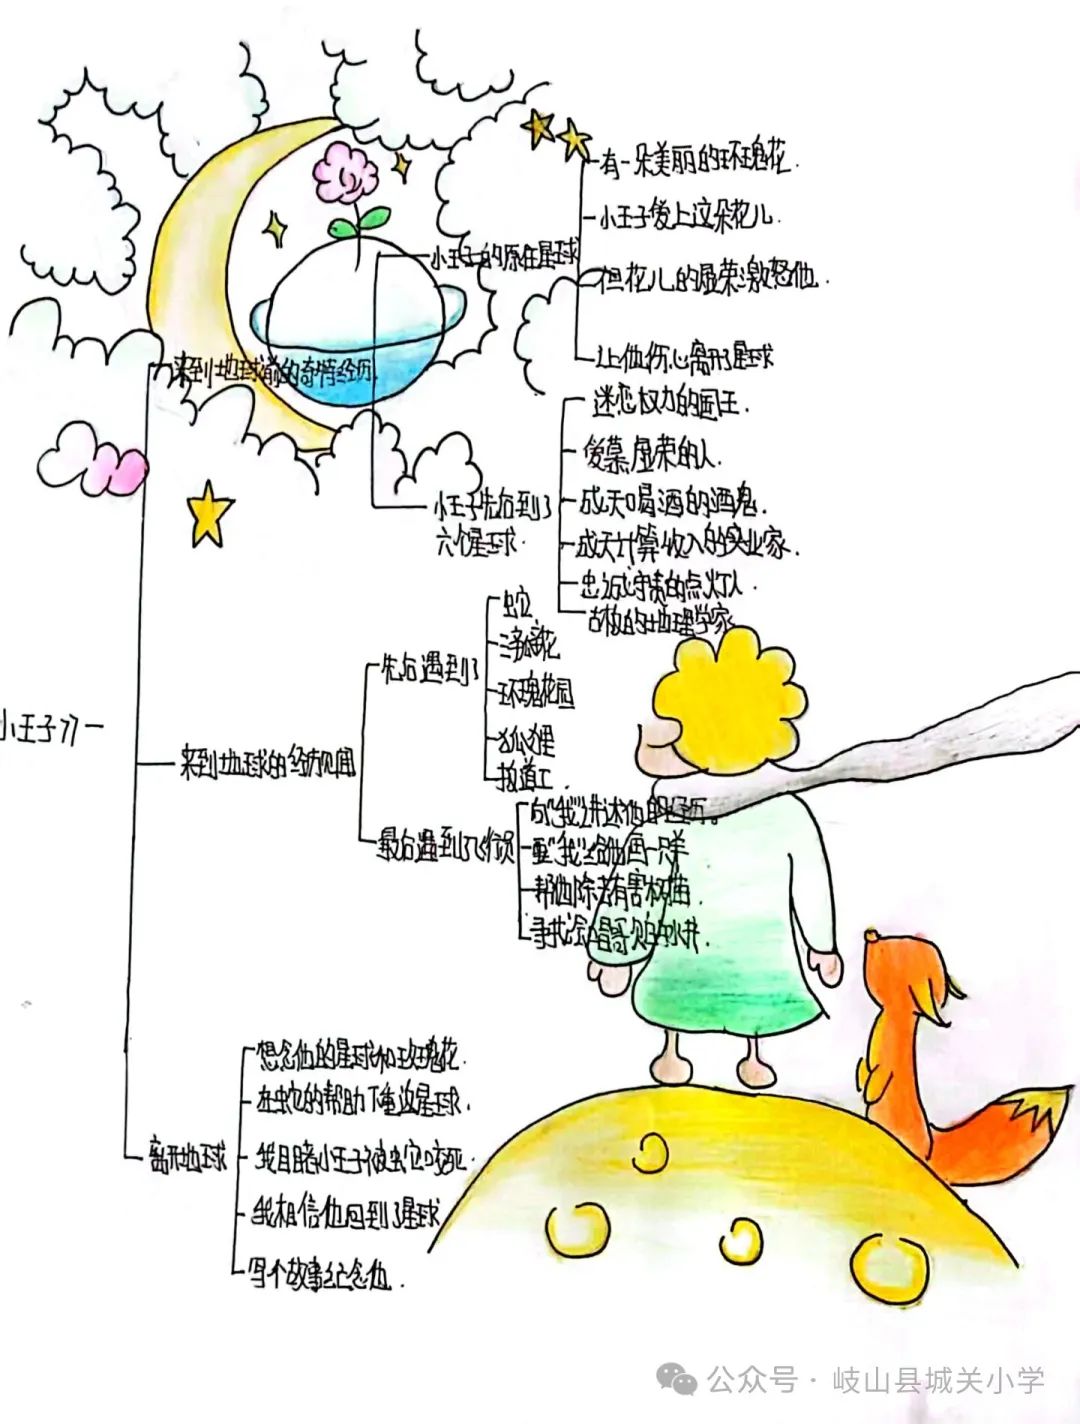 小王子》
来到地球前的奇特经历
小王子的原住星球
有一朵美丽的玫瑰花.
小王子爱上这朵花儿.
但花儿的虚荣激怒他.
让他伤心离开了星球
小王子先后到了
六个星球.
迷恋权力的国王.
爱慕虚荣的人.
成天喝酒的酒鬼.
成天计算收入的实业家.
忠诚守责的点灯人.
古板的地理学家
来到地球的经历见闻
先后遇到了
蛇
沙漠花
玫瑰花园
狐狸
扳道工.
最后遇到了飞行员
向"我"讲述他的经历。
要"我"给他画一只羊
帮他除去有害树苗.
寻找会唱歌的水井.
离开地球
想念他的星球和玫瑰花.
在蛇的帮助下重返星球.
我目睹小王子被蛇咬死.
我相信他回到了星球
写个故事纪念他.
公众号·岐山县城关小学